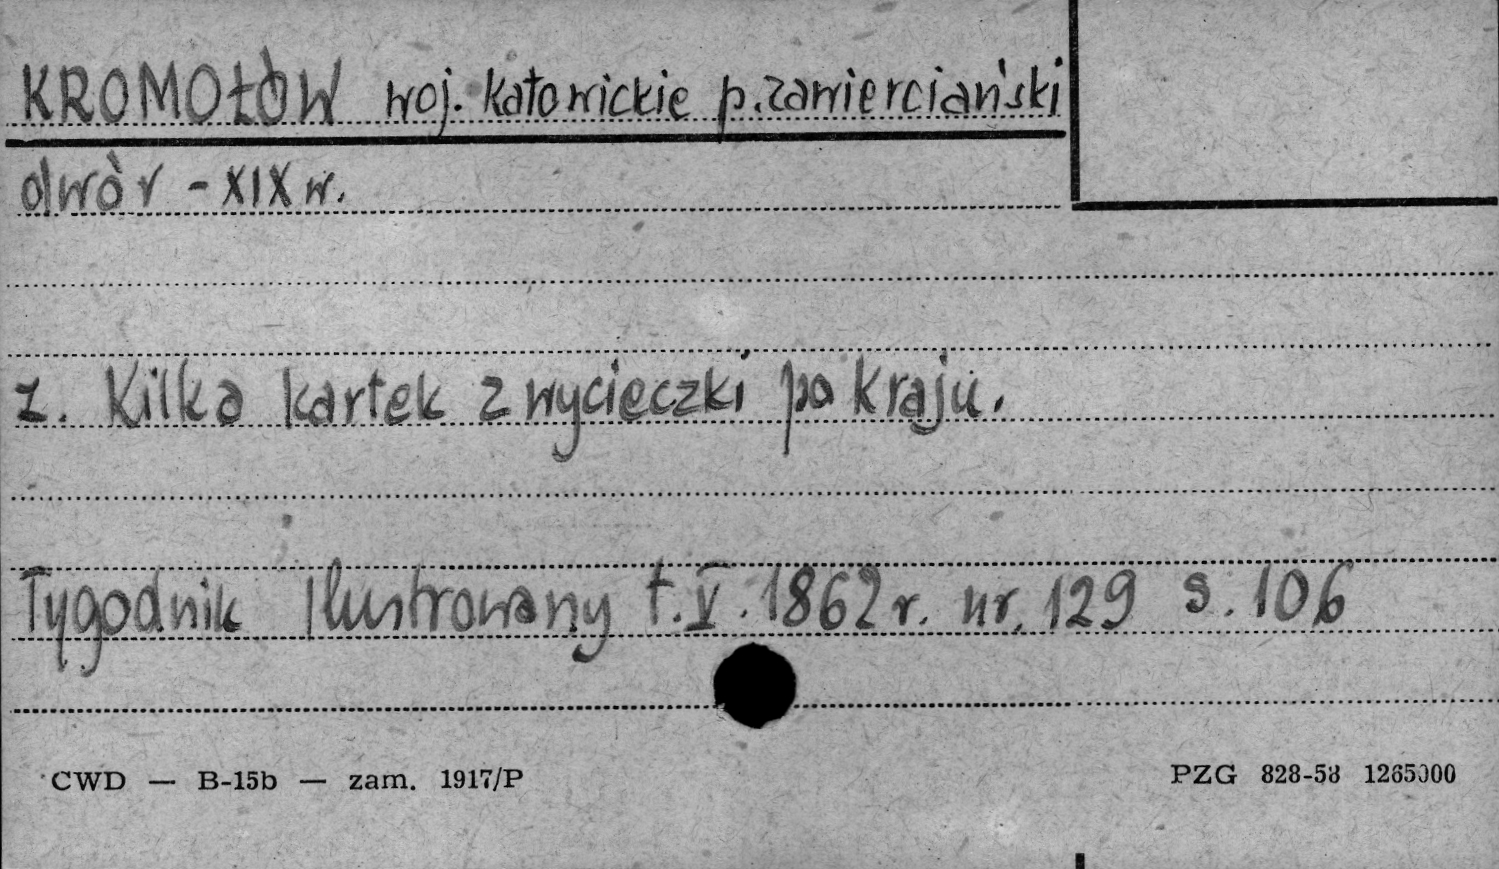 KROMOŁÓW woj. katowickie p. zawierciański
dwór - XIX w.
z. Kilka kartek z wycieczki po kraju.
Tygodnik Ilustrowany t. V. 1862 r. nr. 129 s. 106
CWD — B-15b — zam. 1917/P
PZG 828-58 1265000